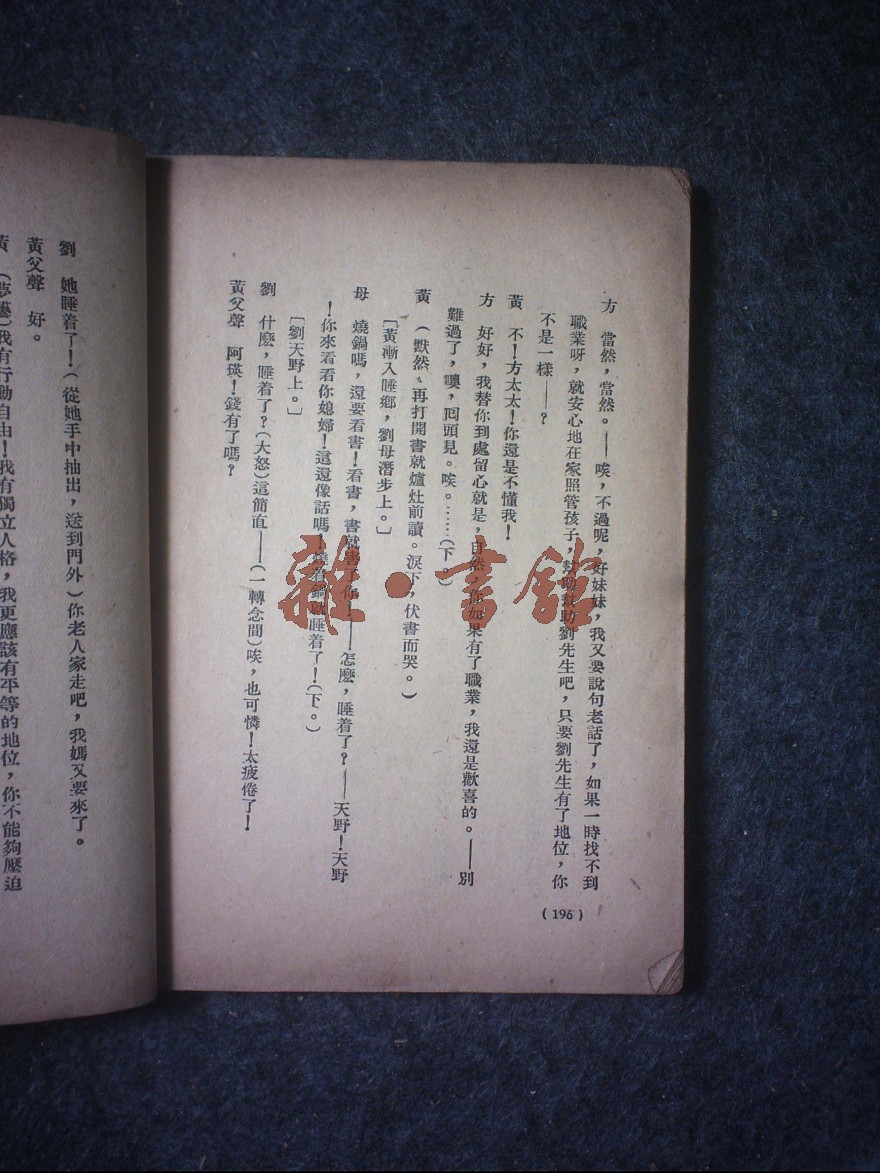 方　當然，當然。——唉，不過呢，好妹妹，我又要說句老話了，如果一時找不到
職業呀，就安心地在家照管孩子，幫助幫助劉先生吧，只要劉先生有了地位，你
不是一樣——？
黃　不！方太太！你還是不懂我！
方　好好，我替你到處留心就是，自然，你如果有了職業，我還是歡喜的。——別
難過了，噢，囘頭見。唉。……(下。)
黃　（默然、再打開書就爐灶前讀。淚下，伏書而哭。）
［黃漸入睡鄉，劉母潛步上。］
母　燒鍋嗎，還要看書！看書，書就害了你——怎麽，睡着了？——天野！天野
！你來看看你媳婦！這還像話嗎！燒着鍋就睡着了！(下。)
［劉天野上。］
劉　什麽，睡着了？(大怒)這簡直——(一轉念間)唉，也可憐！太疲倦了！
黃父聲　阿瑛！錢有了嗎？
(196)
劉　她睡着了！（從她手中抽出，送到門外）你老人家走吧，我媽又要來了。
黃父聲　好。
黃　（夢囈）我有行動自由！我有獨立人格，我更應該有平等的地位，你不能夠壓迫
雜·書館